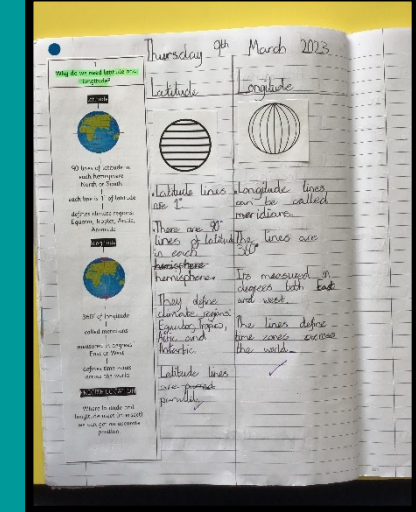 Thursday 9th March 2023
1
Why do we need latitude and
longitude?
Latitude
90 lines of latitude in
each hemisphere
North or South
each line is 1° of latitude
defines climate regions:
Equator, Tropics, Arctic,
Antarctic
Longitude
360° of longitude
called meridians
measures in degrees
East or West
defines time zones
across the world
Where latitude and
longitude meet
we can get an accurate
position
Latitude
• Latitude lines
are 1°
• There are 90°
lines of latitude
in each
hemisphere
hemisphere.
They define
climate regions:
Equator, Tropics,
Artic and
Antartic.
Latitude lines
are
parallel
Longitude
• Longitude lines
can be called
meridians.
The lines are
360°
Its measured in
degrees both east
and west.
The lines define
time zones
the world.